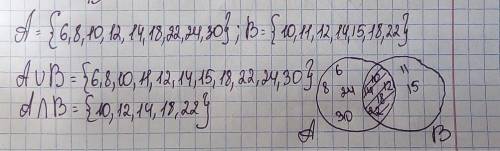 A = {6,8,10,12,14,18,22,24,30}; B = {10,11,12,14,15,18,22}
A∪B = {6,8,10,11,12,14,15,18,22,24,30}
A∩B = {10,12,14,18,22}
6 10 11
8 24 14 18 12 15
30 22
A B